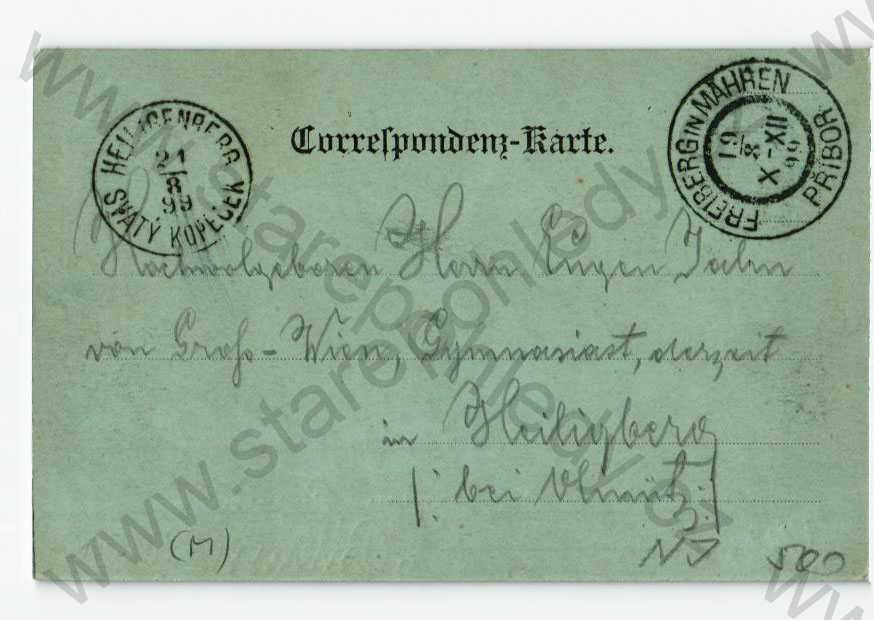 Correspondenz-Karte.
HEILIGENBERG
21
/8
99
SVATÝ KOPEČEK
FREIBERG IN MÄHREN
19
8
X-XII
99
PŘÍBOR
Hochwolgeboren Herrn Eugen
von Gross-Wien, Gymnasiast, derzeit
in Heiligberg
/: bei Olmütz :/
(M)
NJ
500
www.starepohledy.cz